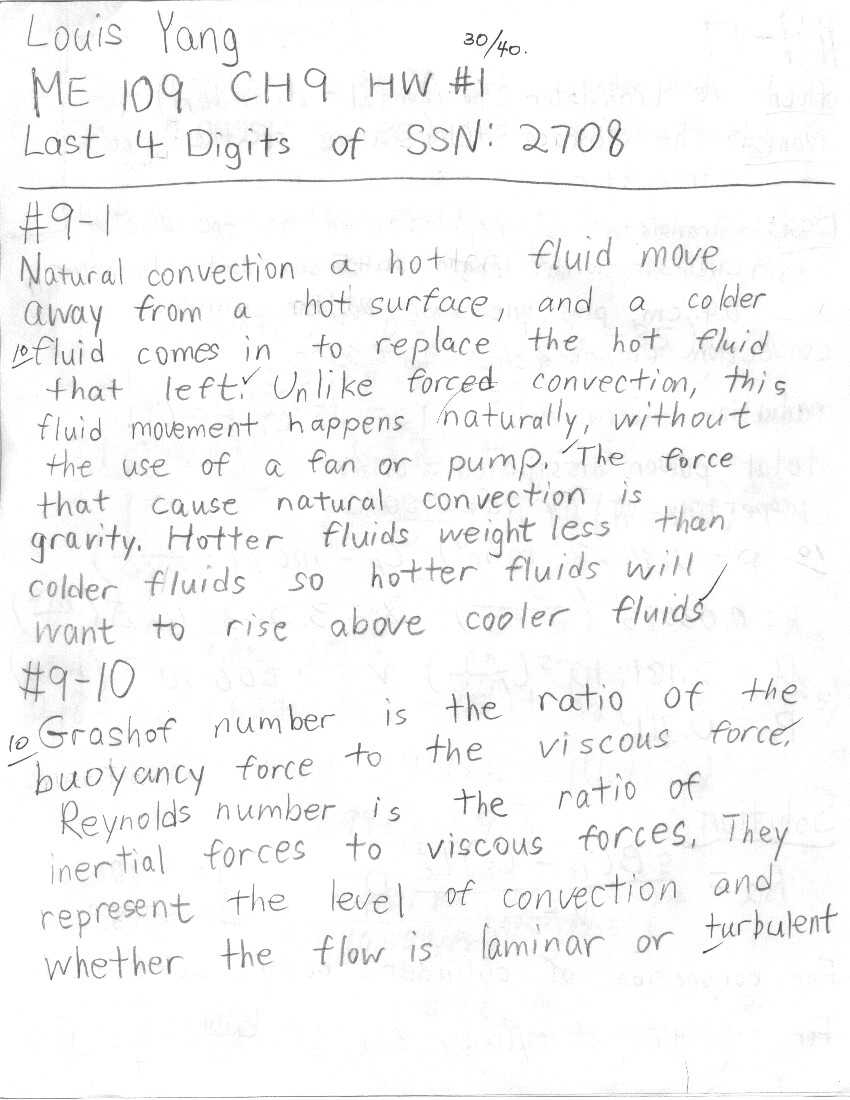 Louis Yang
30/40.
ME 109 CH9 HW #1
Last 4 Digits of SSN: 2708
#9-1
Natural convection a hot fluid move
away from a hot surface, and a colder
10 fluid comes in to replace the hot fluid
that left. Unlike forced convection, this
fluid movement happens naturally, without
the use of a fan or pump. The force
that cause natural convection is
gravity. Hotter fluids weight less than
colder fluids so hotter fluids will
want to rise above cooler fluids
#9-10
Grashof number is the ratio of the
10 buoyancy force to the viscous force.
Reynolds number is the ratio of
inertial forces to viscous forces. They
represent the level of convection and
whether the flow is laminar or turbulent